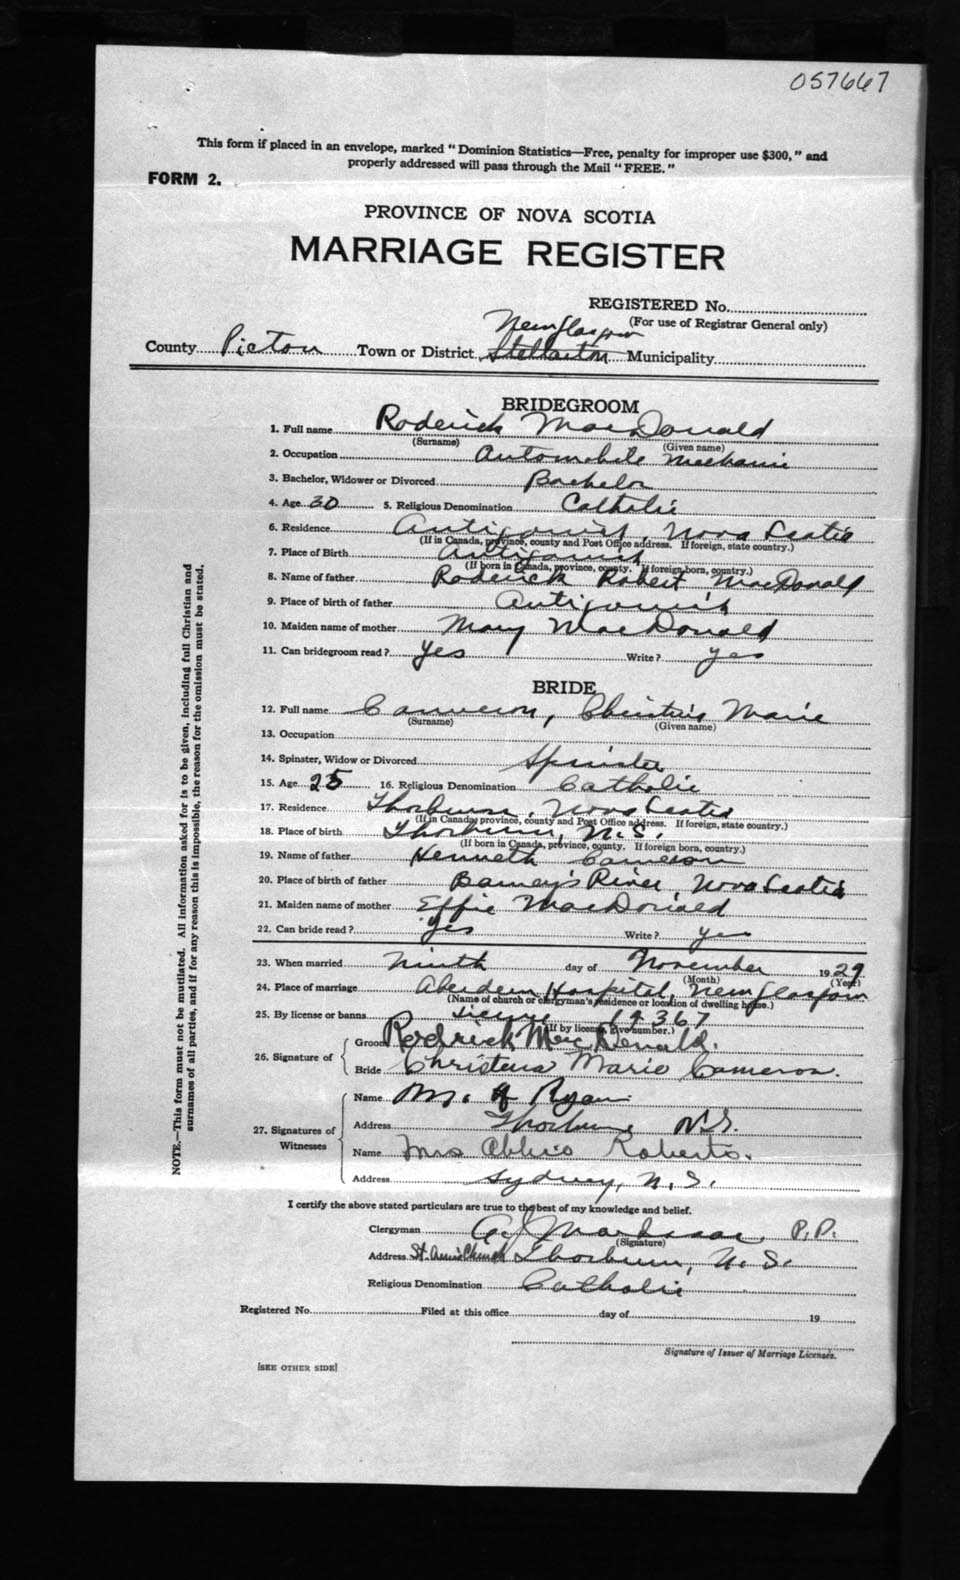 057667
This form if placed in an envelope, marked "Dominion Statistics—Free, penalty for improper use $300," and
properly addressed will pass through the Mail "FREE."
FORM 2.
PROVINCE OF NOVA SCOTIA
MARRIAGE REGISTER
REGISTERED No.
(For use of Registrar General only)
New Glasgow
County Pictou Town or District Stellarton Municipality
BRIDEGROOM
1. Full name Roderick MacDonald
(Surname) (Given name)
2. Occupation Automobile Mechanic
3. Bachelor, Widower or Divorced Bachelor
4. Age 30 5. Religious Denomination Catholic
6. Residence Antigonish, Nova Scotia
(If in Canada, province, county and Post Office address. If foreign, state country.)
7. Place of Birth Antigonish
(If born in Canada, province, county. If foreign born, country.)
8. Name of father Roderick Robert MacDonald
9. Place of birth of father Antigonish
10. Maiden name of mother Mary MacDonald
11. Can bridegroom read? Yes Write? yes
BRIDE
12. Full name Cameron, Christie Marie
(Surname) (Given name)
13. Occupation
14. Spinster, Widow or Divorced Spinster
15. Age 25 16. Religious Denomination Catholic
17. Residence Thorburn, Nova Scotia
(If in Canada, province, county and Post Office address. If foreign, state country.)
18. Place of birth Thorburn, N.S.
(If born in Canada, province, county. If foreign born, country.)
19. Name of father Kenneth Cameron
20. Place of birth of father Barney's River, Nova Scotia
21. Maiden name of mother Effie MacDonald
22. Can bride read? Yes Write? yes
23. When married Ninth day of November 1929
(Month) (Year)
24. Place of marriage Aberdeen Hospital, New Glasgow
(Name of church or clergyman's residence or location of dwelling house.)
25. By license or banns License 19367
(If by license, give number.)
26. Signature of
Groom Rodrick MacDonald.
Bride Christena Marie Cameron.
27. Signatures of Witnesses
Name M. A Ryan
Address Thorburn N.S.
Name Mrs Abbie Roberts.
Address Sydney, N.S.
I certify the above stated particulars are true to the best of my knowledge and belief.
Clergyman A. J. MacIsaac, P.P.
(Signature)
Address St. Ann's Church Thorburn, N.S.
Religious Denomination Catholic
Registered No. Filed at this office day of 19
Signature of Issuer of Marriage Licenses.
[SEE OTHER SIDE]
NOTE.—This form must not be mutilated. All information asked for is to be given, including full Christian and
surnames of all parties, and if for any reason this is impossible, the reason for the omission must be stated.